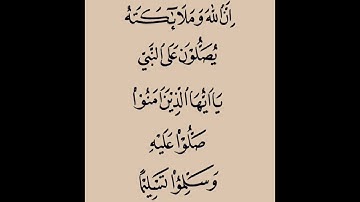 اِنَّ اللهَ وَمَلَائِكَتَهُ
يُصَلُّوْنَ عَلَى النَّبِيِّ
يَا اَيُّهَا الَّذِيْنَ اٰمَنُوْا
صَلُّوْا عَلَيْهِ
وَسَلِّمُوْا تَسْلِيْمًا